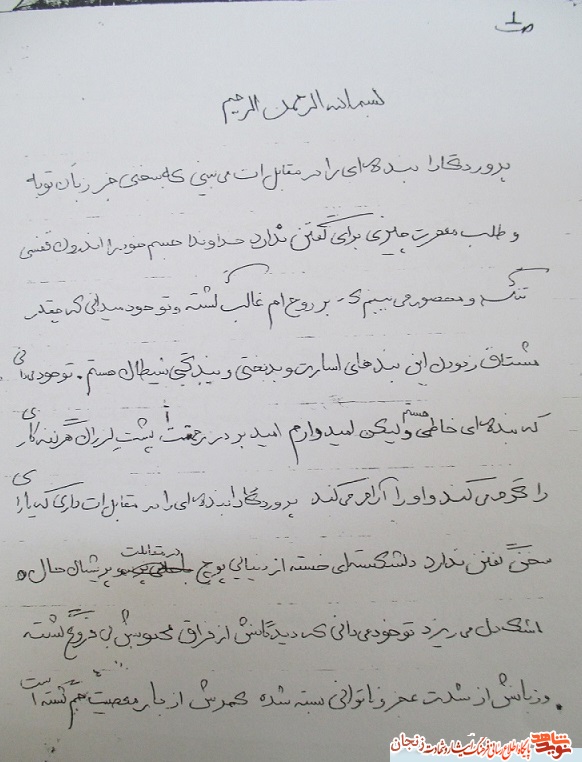 ص ۱
بسم الله الرحمن الرحیم
پروردگارا بنده ای را در مقابل ات می بینی که سخنی جز زبان توبه
و طلب مغفرت چیزی برای گفتن ندارد خداوندا جسم خود را اندرون قفسی
تنگ و محصور می بینم که بر روح ام غالب گشته و تو خود میدانی که چقدر
مشتاق زدودن این بندهای اسارت و بدبختی و بندگی شیطان هستم. تو خود میدانی
که بنده ای خاطی هستم ولیکن امیدوارم امید بر درِ رحمتت پشت هر گنه کاری
را گرم می کند و او را آرام می کند پروردگارا بنده ای را در مقابل ات داری که یارای
سخن گفتن ندارد دلشکسته ای خسته از دنیایی پوچ در مقابلت پریشان حال
اشک دل می ریزد تو خود می دانی که دیدگانش از فراق محبوبش بی فروغ گشته
و زبانش از شدت عجز و ناتوانی بسته شده کمرش از بار معصیت خم گشته است
نوید شاهد
پایگاه اطلاع رسانی فرهنگ ایثار و شهادت زنجان